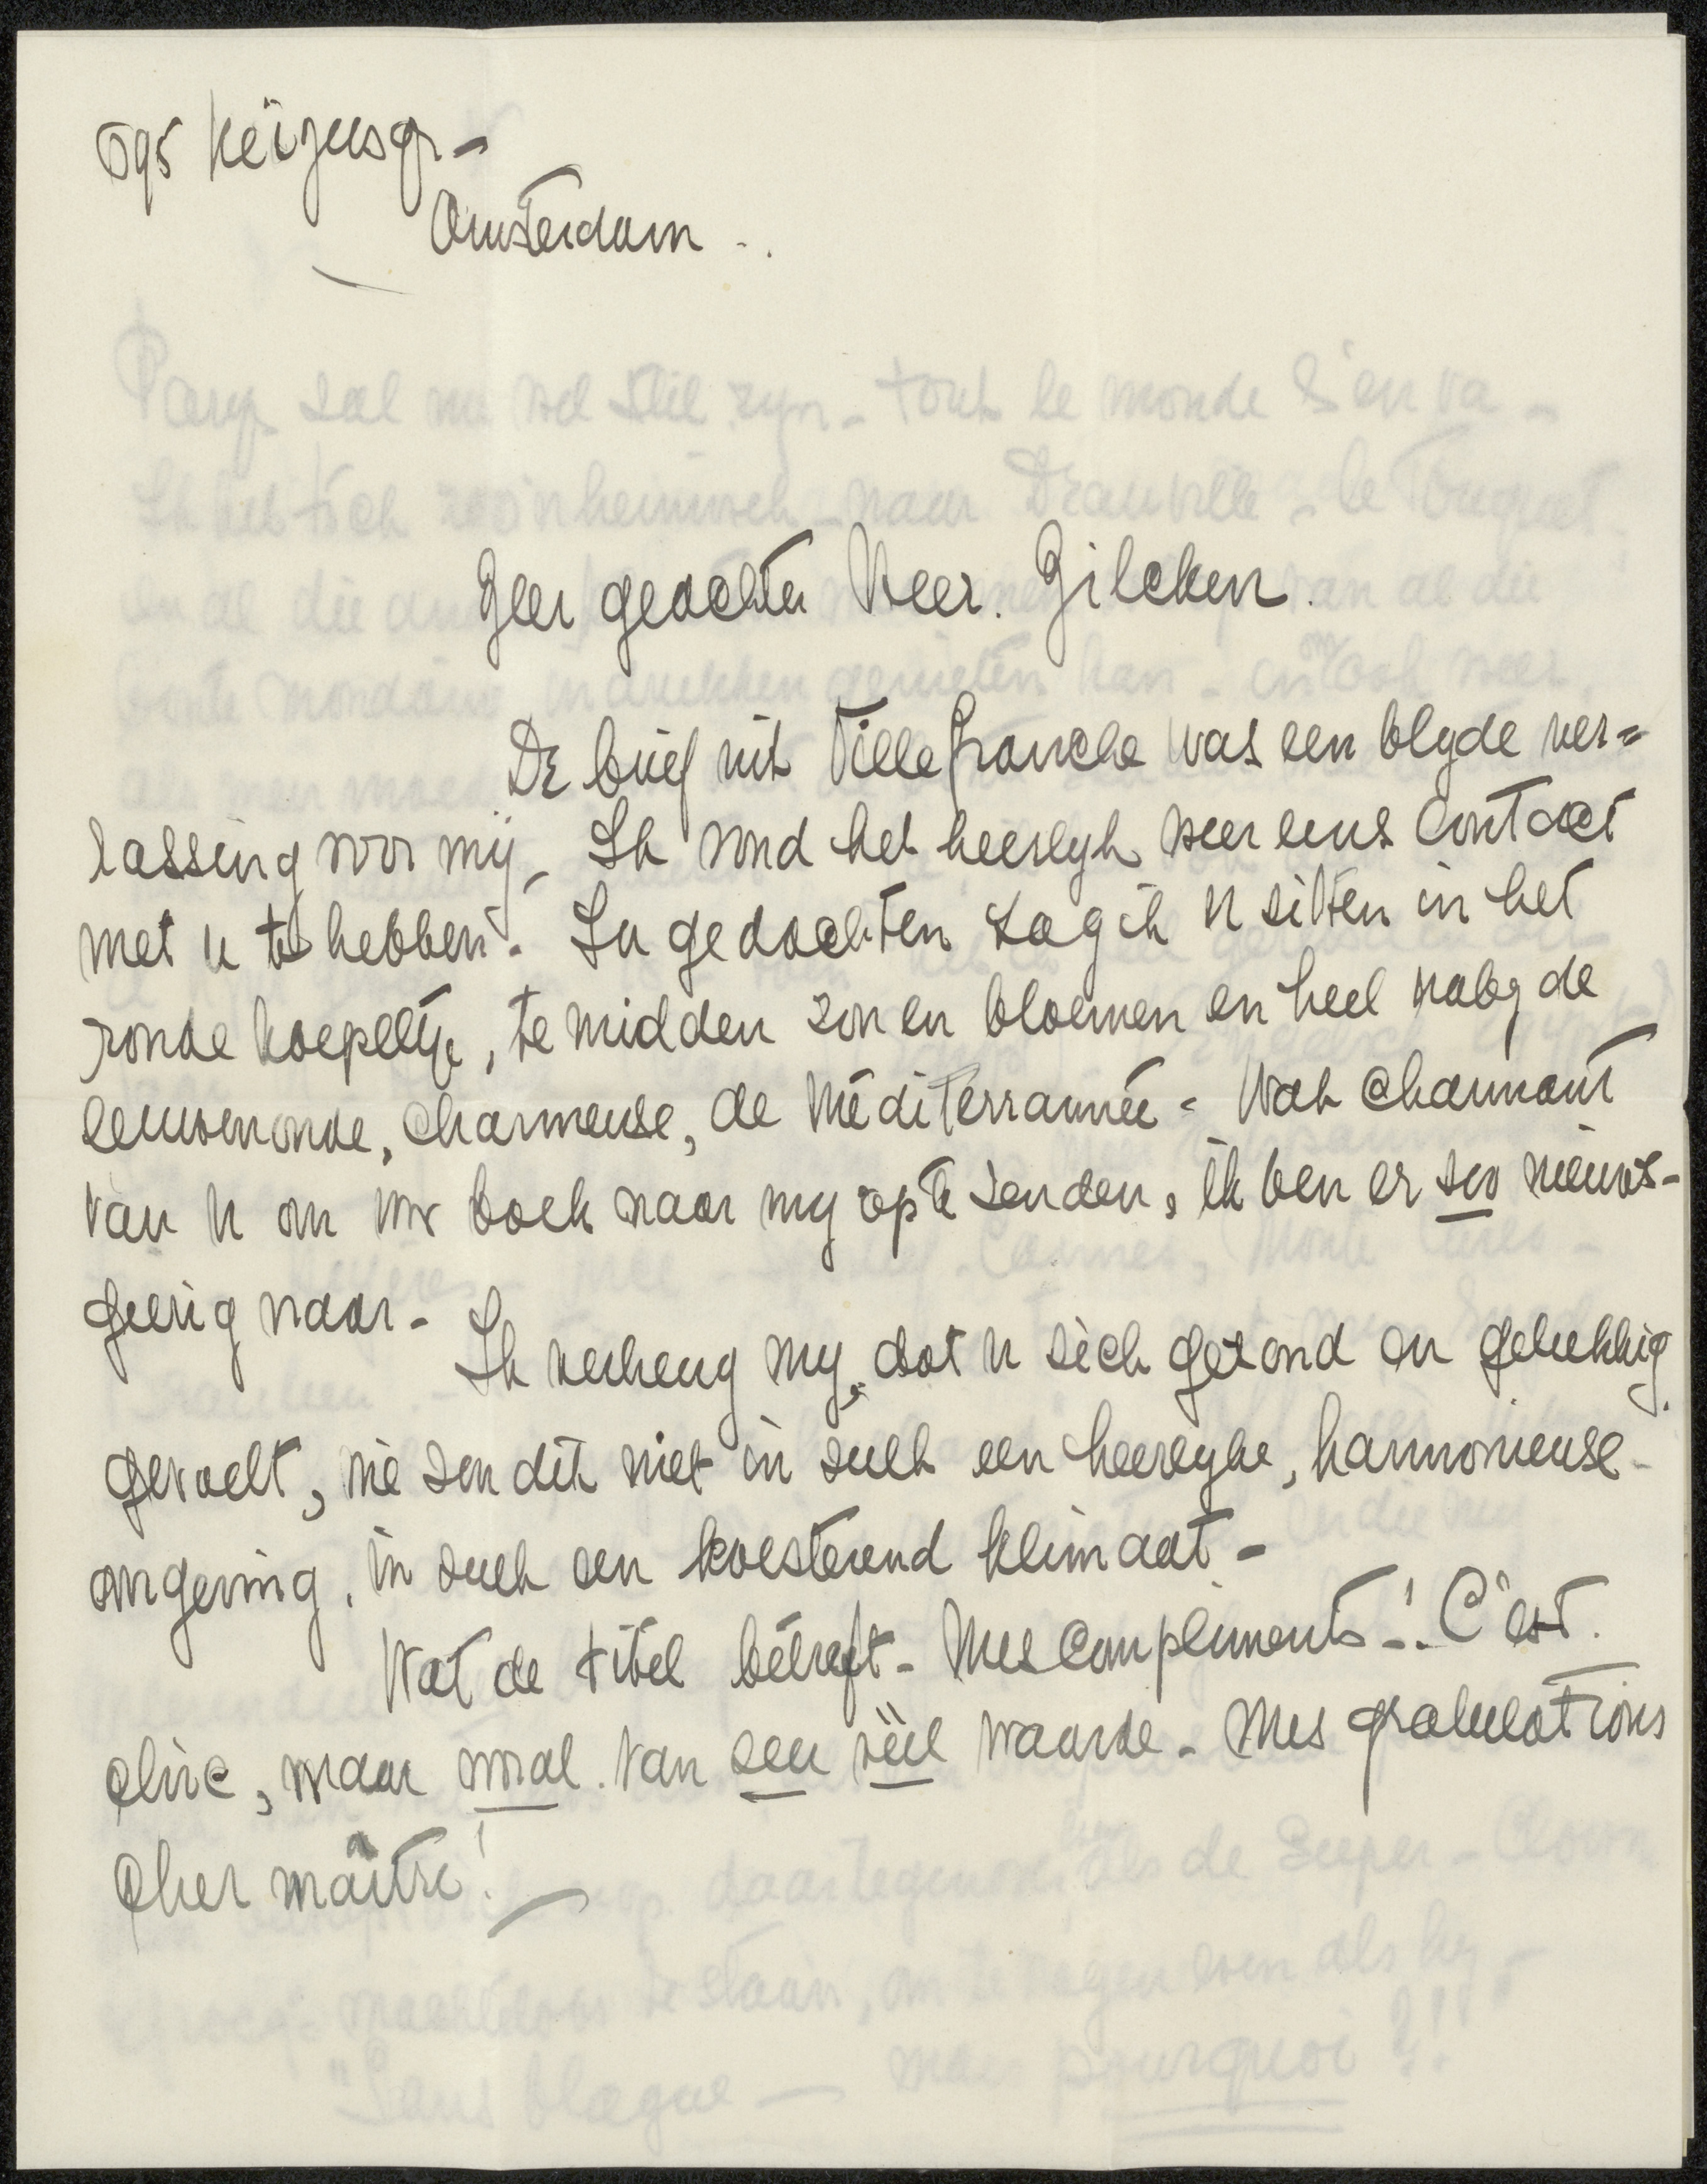 595 Keizersgr-
Amsterdam -.
Zeer geachte Heer. Zilcken.
De brief uit Villefranche was een blyde ver=
rassing voor mÿ - Ik vond het heerlyk weer eens Contact
met u te hebben - In gedachten zag ik U zitten in het
ronde koepeltje, te midden zon en bloemen en heel naby de
eeuwenoude, charmeuse, de Méditerrannée - Wat charmant
van U om uw boek naar my op te zenden, ik ben er zoo nieuws-
gierig naar -
Ik verheug my, dat U zich gezond en gelukkig
gevoelt, wie zou dit niet in zulk een heerlyke, harmonieuse
omgeving, in zulk een koesterend klimaat -
Wat de titel betreft - Mes compliments -! C'est
chic, maar vooral van een reëel waarde - Mes gratulations
cher maître! -